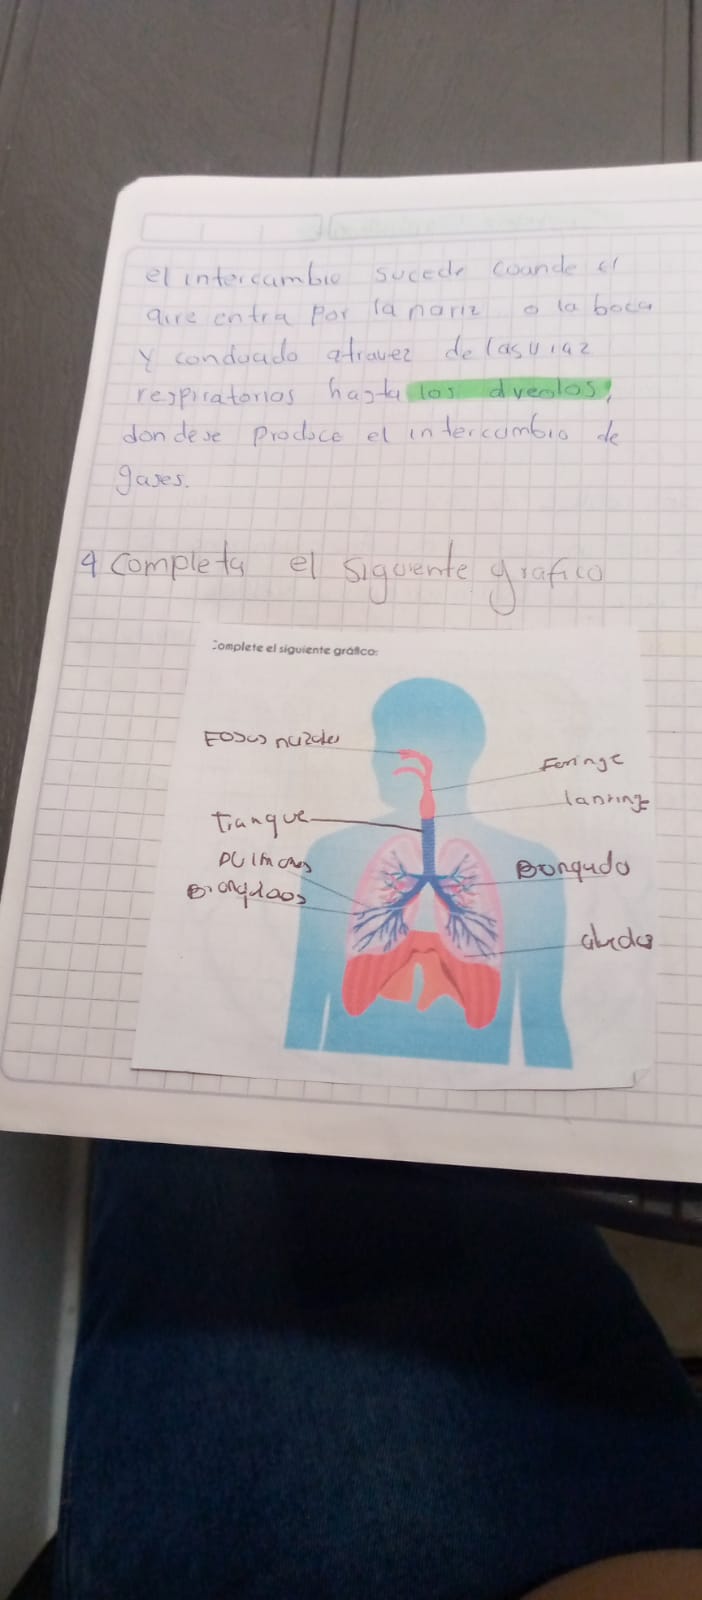 el intercambio sucede cuando el
aire entra por la nariz o la boca
y conducido atravez de las viaz
respiratorios hasta los alveolos,
donde se produce el intercambio de
gases.
4 Completa el siguiente grafico
Complete el siguiente gráfico:
Fosas nazales
Faringe
lanringe
tranque
pulmones
Bronquido
Bronquioos